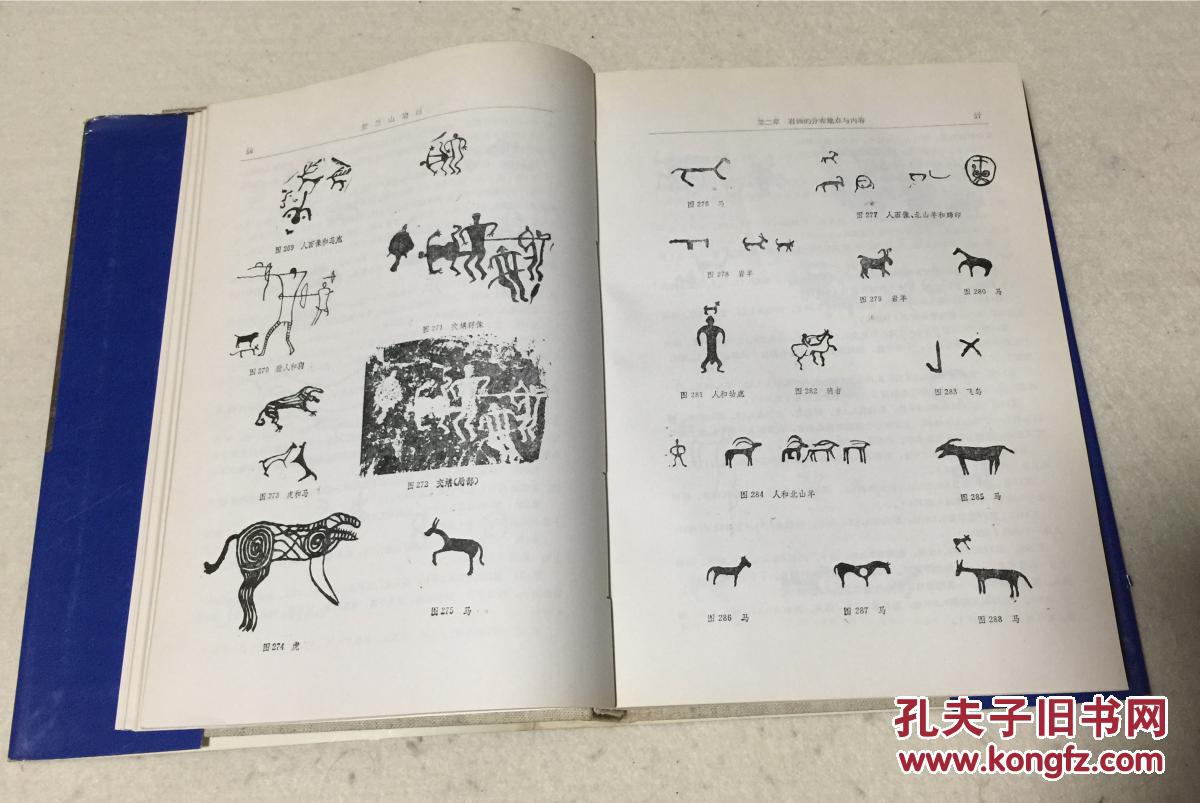 山岩画
图269 人面像和马鹿
图270 猎人和狗
图271 交媾群像
图272 交媾(局部)
图273 虎和马
图274 虎
图275 马
第二章 岩画的分布地点与内容
图276 马
图277 人面像、北山羊和蹄印
图278 岩羊
图279 岩羊
图280 马
图281 人和幼鹿
图282 骑者
图283 飞鸟
图284 人和北山羊
图285 马
图286 马
图287 马
图288 马
孔夫子旧书网
www.kongfz.com